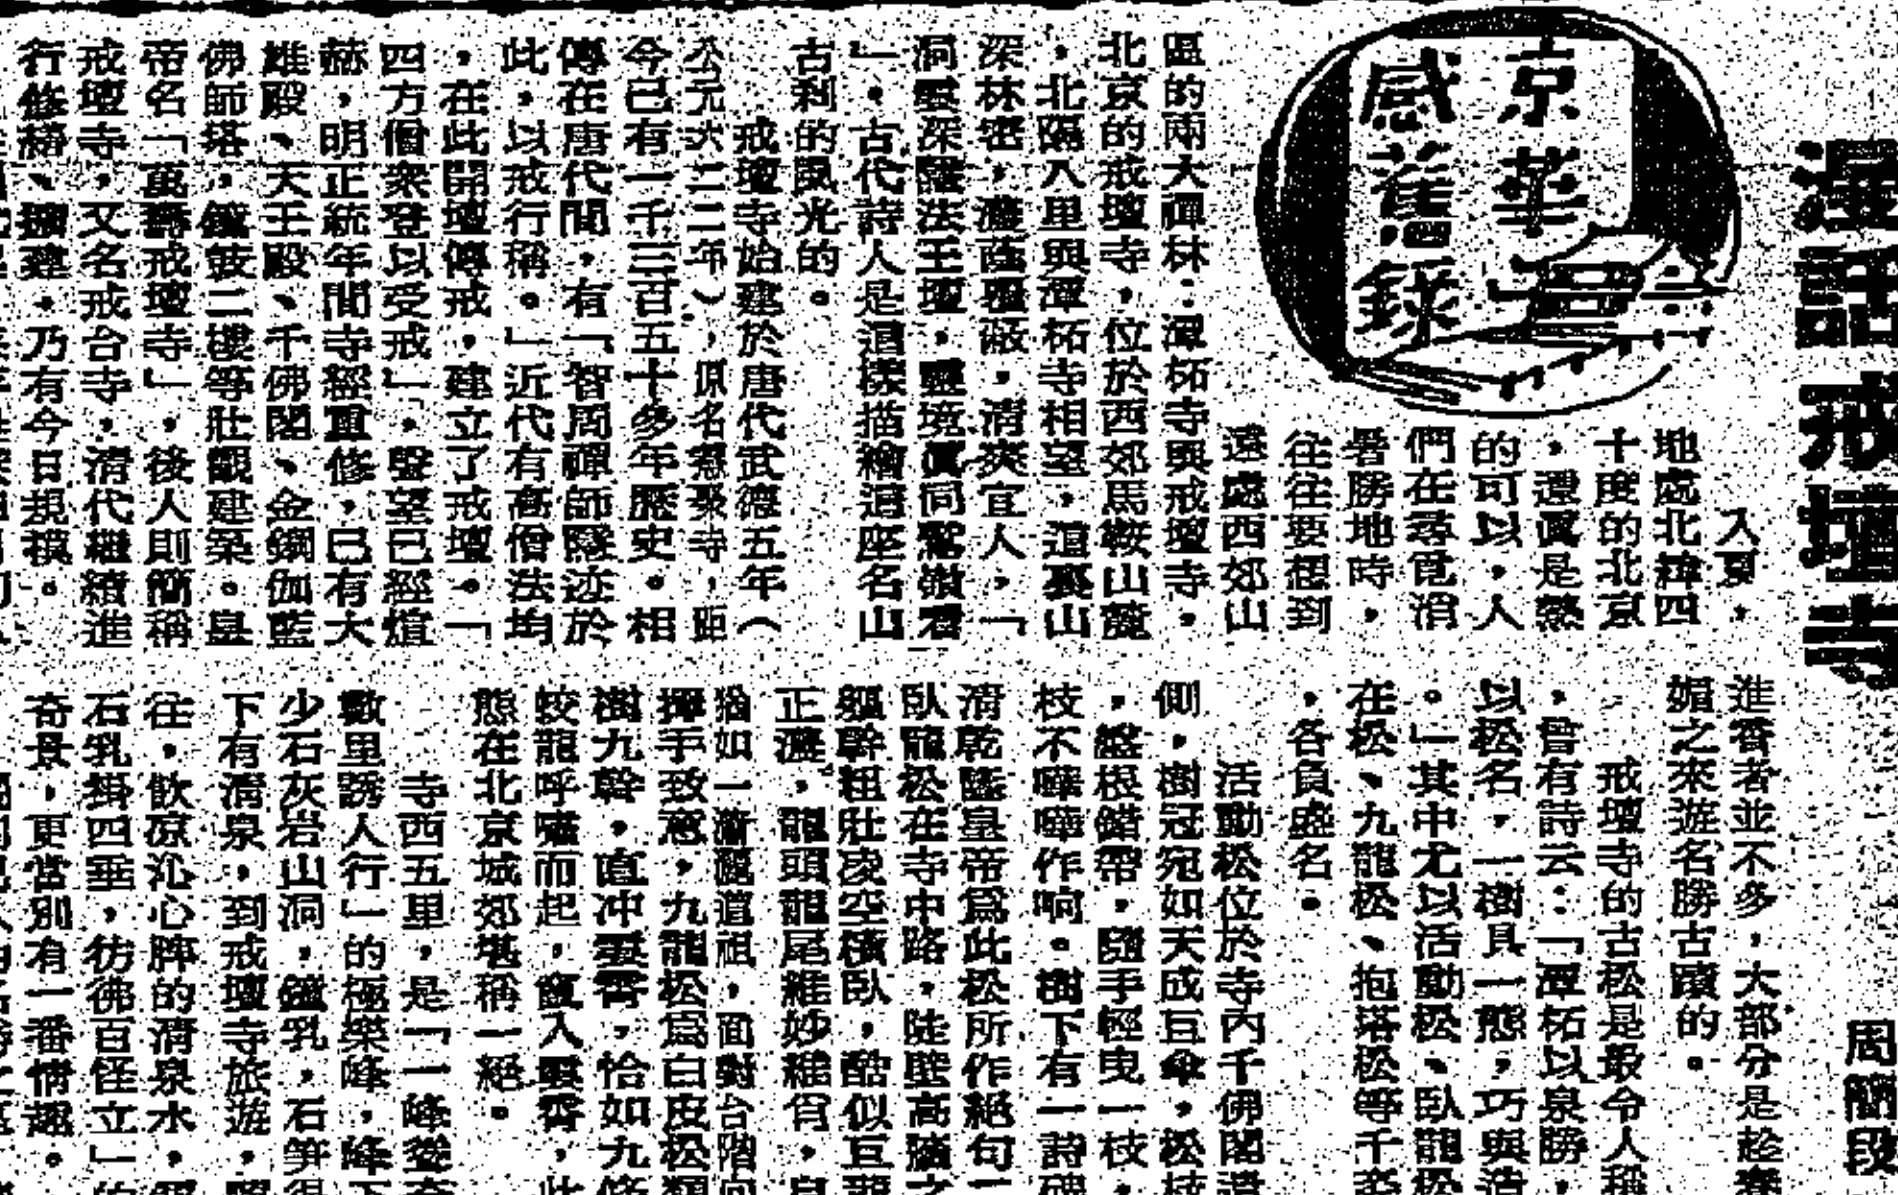 漫話戒壇寺
周簡段
京華
感舊錄
入夏，
地處北緯四
十度的北京
，還眞是熱
的可以，人
們在尋覓消
暑勝地時，
往往要想到
遠處西郊山
區的兩大禪林：潭柘寺與戒壇寺。
北京的戒壇寺，位於西郊馬鞍山麓
，北隔八里與潭柘寺相望，這裏山
深林密，濃蔭覆蔽，清爽宜人，「
洞雲深護法王壇，靈境眞同鷲嶺看
」。古代詩人是這樣描繪這座名山
古刹的風光的。
戒壇寺始建於唐代武德五年（
公元六二二年），原名慧聚寺，距
今已有一千三百五十多年歷史。相
傳在唐代間，有「智周禪師隱迹於
此，以戒行稱。」近代有高僧法均
，在此開壇傳戒，建立了戒壇。「
四方僧衆登以受戒」，聲望已經煊
赫，明正統年間寺經重修，已有大
雄殿、天王殿、千佛閣、金鋼伽藍
佛師塔，鐘鼓二樓等壯觀建築。皇
帝名「萬壽戒壇寺」，後人則簡稱
戒壇寺，又名戒台寺，清代繼續進
行修繕、擴建。乃有今日規模。
進香者並不多，大部分是趁
媚之來遊名勝古蹟的。
戒壇寺的古松是最令人稱
，曾有詩云：「潭柘以泉勝，
以松名，一樹具一態，巧與造
。」其中尤以活動松、臥龍松
在松、九龍松、抱塔松等千姿
，各負盛名。
活動松位於寺內千佛閣遺
側，樹冠宛如天成巨傘，松枝
，盤根錯帶，隨手輕曳一枝，
枝不嘩嘩作响。樹下有一詩碑
清乾隆皇帝爲此松所作絕句一
臥龍松在寺中路，陡壁高牆之
軀幹粗壯凌空橫臥，酷似巨龍
正濃，龍頭龍尾維妙維肖，自
猶如一瀟灑道祖，面對台階向
揮手致意，九龍松爲白皮松類
樹九幹，直冲雲霄，恰如九條
蛟龍呼嘯而起，竄入雲霄，此
態在北京城郊堪稱一絕。
寺西五里，是「一峰
數里誘人行」的極樂峰，峰下
少石灰岩山洞，鐘乳，石笋
下有清泉，到戒壇寺旅遊，
往，飲凉沁心脾的清泉水，
石乳掛四垂，彷彿百怪立」的
奇景，更當別有一番情趣。